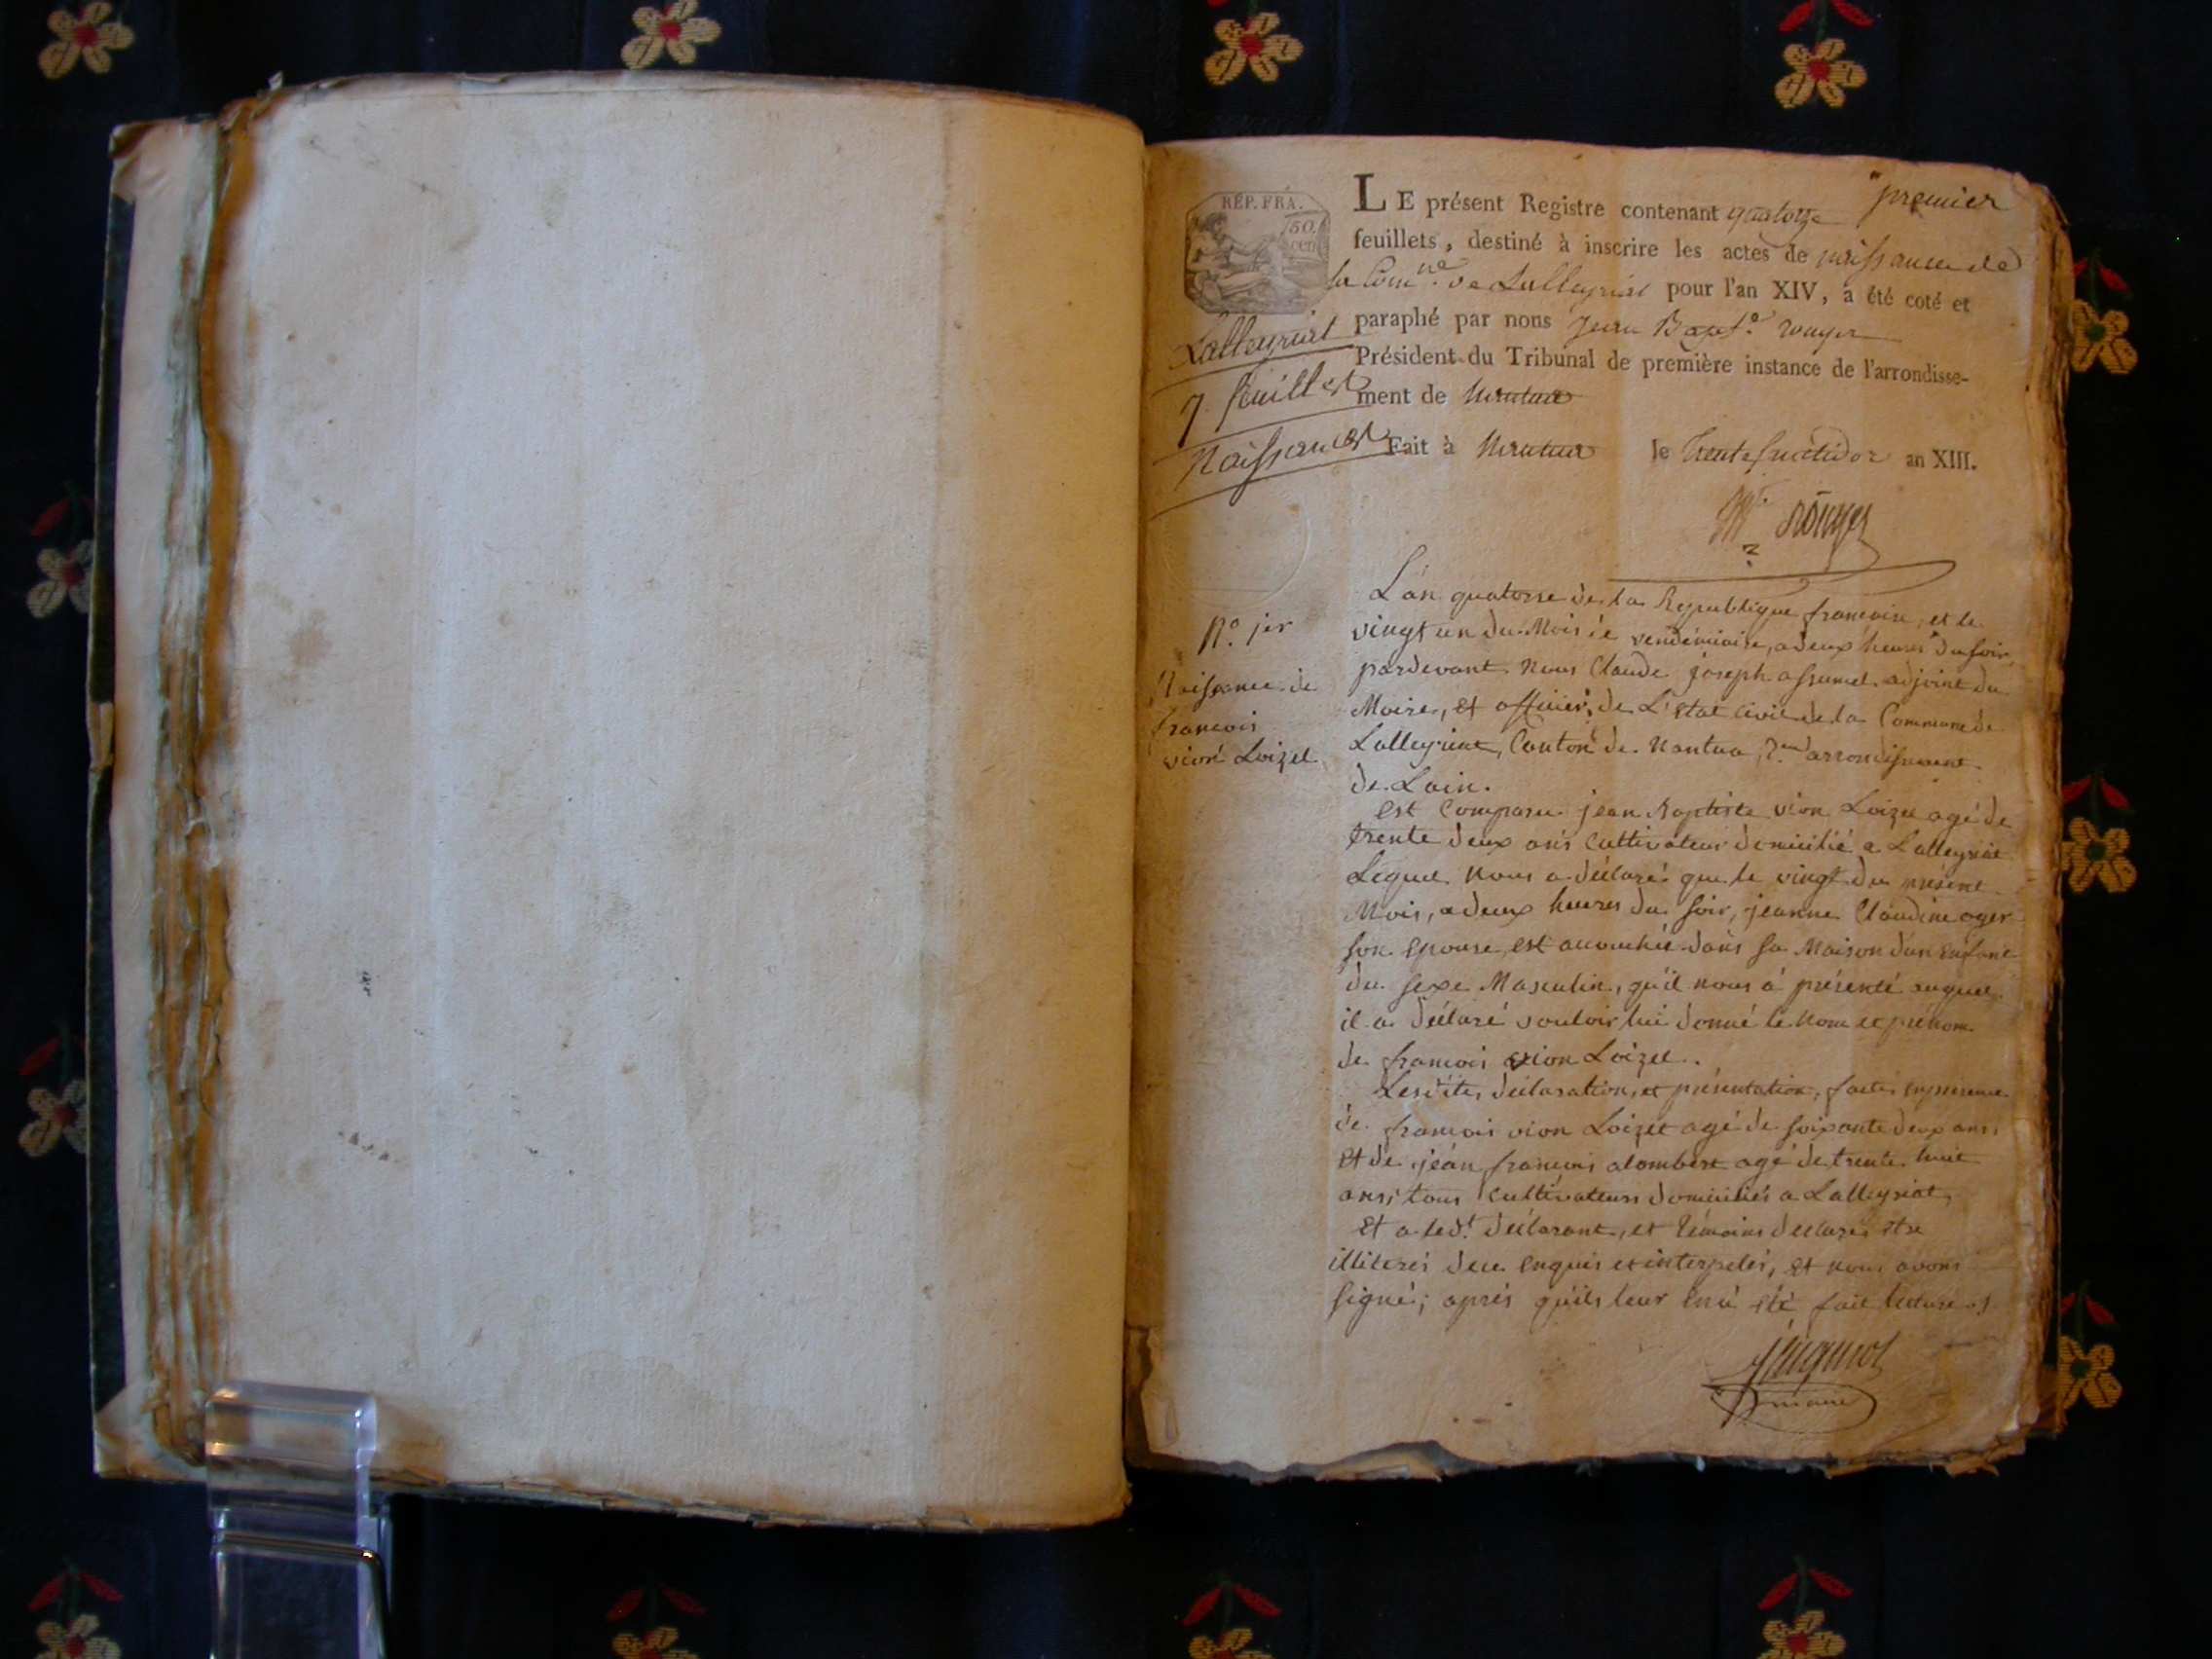 RÉP. FRA.
50.
cen
premier
LE présent Registre contenant quatorze
feuillets, destiné à inscrire les actes de naissance de
la Comne. de Lalleyriat pour l'an XIV, a été coté et
paraphé par nous Jean Bapte. rouyer
Président du Tribunal de première instance de l'arrondisse-
ment de Nantua
Fait à Nantua le trente fructidor an XIII.
Lalleyriat
7. feuillets
Naissances
rouyer
N.o 1er
Naissance de
francois
vion Loizet
L'an quatorse de la Republique francaise, et le
vingt un du Mois de vendémiaire, a deux heures du soir,
pardevant nous Claude joseph assumel adjoint du
Maire, et officier de L'etat Civil de la Commune de
Lalleyriat, Canton de Nantua, arrondissement
de Lain.
Est Comparu jean Baptiste vion Loizet agé de
trente deux ans Cultivateur domicilié a Lalleyriat
Lequel nous a déclaré que le vingt du présent
Mois, a deux heures du soir, jeanne Claudine oger
son Epouse est accouchée dans sa Maison dun Enfant
du sexe Masculin, qu'il nous á présenté auquel
il a déclaré vouloir lui donné le nom et prénom
de francois vion Loizet.
Lesdites déclaration, et présentation, faites en presence
de francois vion Loizet agé de soixante deux ans,
Et de jean francois alombert agé de trente huit
ans, tous Cultivateurs domiciliés a Lalleyriat,
Et a led.t déclarant, et témoins declarés etre
illiterés de ce enquis et interpelés, et nous avons
signé; aprés qu'ils leur en á été fait lecture
maire